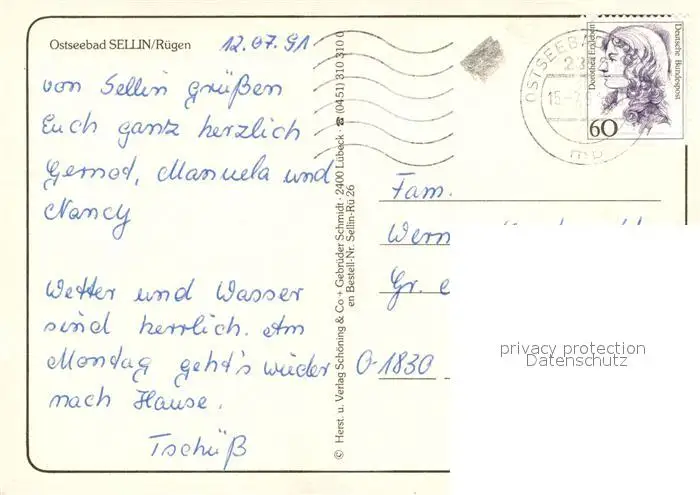 Ostseebad SELLIN/Rügen 12.07.91
von Sellin grüßen
Euch ganz herzlich
Gernod, Manuela und
Nancy
Wetter und Wasser
sind herrlich. Am
Montag geht's wieder
nach Hause.
Tschüß
© Herst. u. Verlag Schöning & Co + Gebrüder Schmidt · 2400 Lübeck · ☎ (0451) 310 310 0
en Bestell-Nr. Sellin-Rü 26
OSTSEEBAD
15-7
Dorothea Erxleben
Deutsche Bundespost
60
Fam.
Wern
Gr.
O-1830
privacy protection
Datenschutz